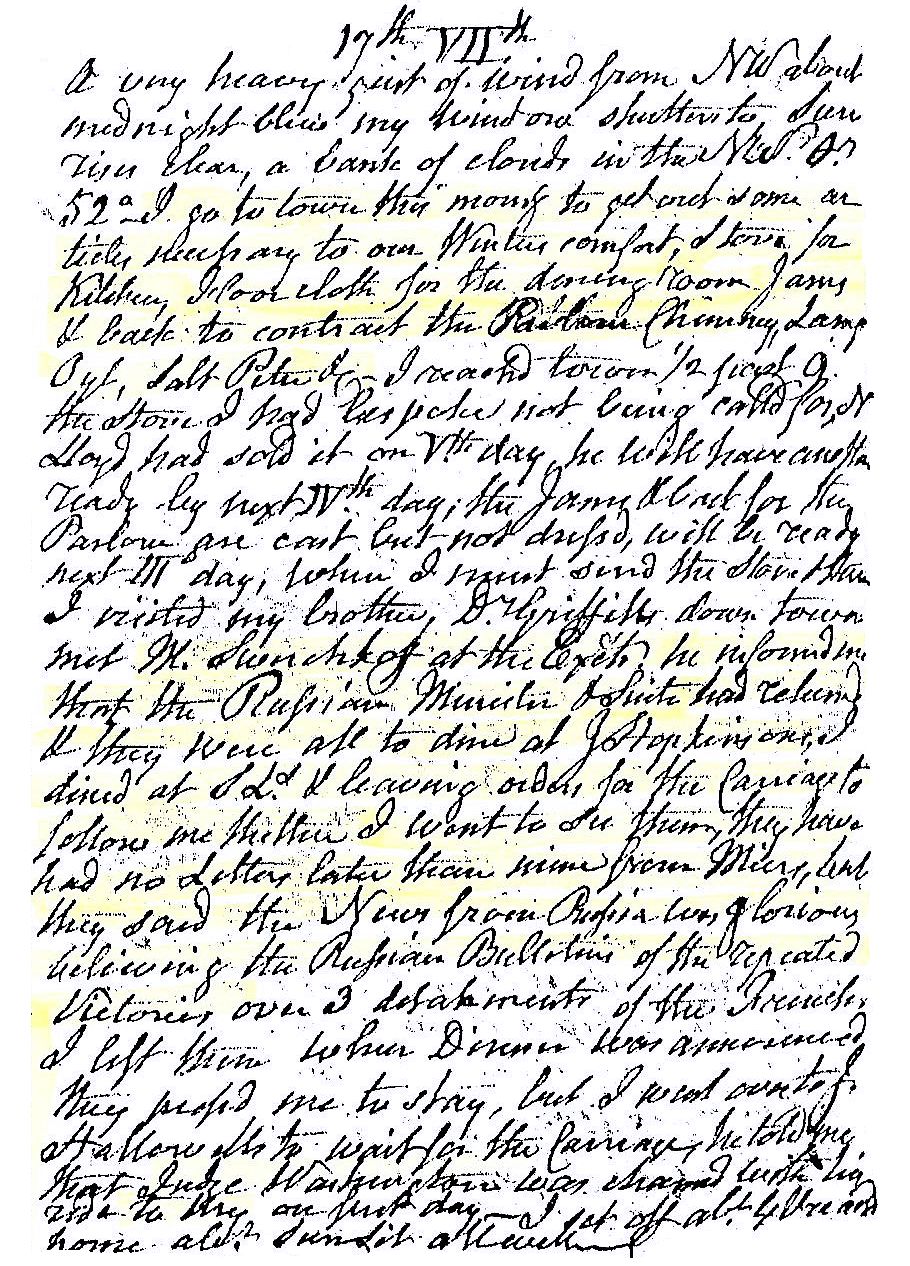 17th VIIth
A very heavy gust of Wind from NW about
midnight blew my window shutters to Sun
rises clear, a bank of clouds in the NW.
52° I go to town this morng to get out some ar
ticles necessary to our Winter comfort, Stove for
Kitchen, Floor cloth for the dining room Jams
& back to contract the Parlour Chimney, Lamp
Oyl, Salt Petre &c - I reachd town 1/2 past 9.
the stove I had bespoke not being calld for, N
Lloyd had sold it on Vth day, he will have another
ready by next IVth day; the Jams & back for the
Parlour are cast but not dressd, will be ready
next III day, when I must send the Stove
I visited my brother, Dr Griffitts down town
met M. at the he informd me
that the Russian Minister & Suite had returnd
& they were all to dine at J Hopkinsons, I
dined at S Ls & leaving orders for the Carriage to
follow me thither I went to see them, they have
had no Letters later than mine from Miers, but
they said the News from Russia was glorious
believing the Russian Bulletins of the repeated
Victories over 3 detachments of the French,
I left them when Dinner was announced
they pressd me to stay, but I went over to J.
Hallowells to wait for the Carriage, he told me
that Judge Washington was charmd with his
ride to my on first day - I set off abt 4 & reachd
home abt Sunset all well